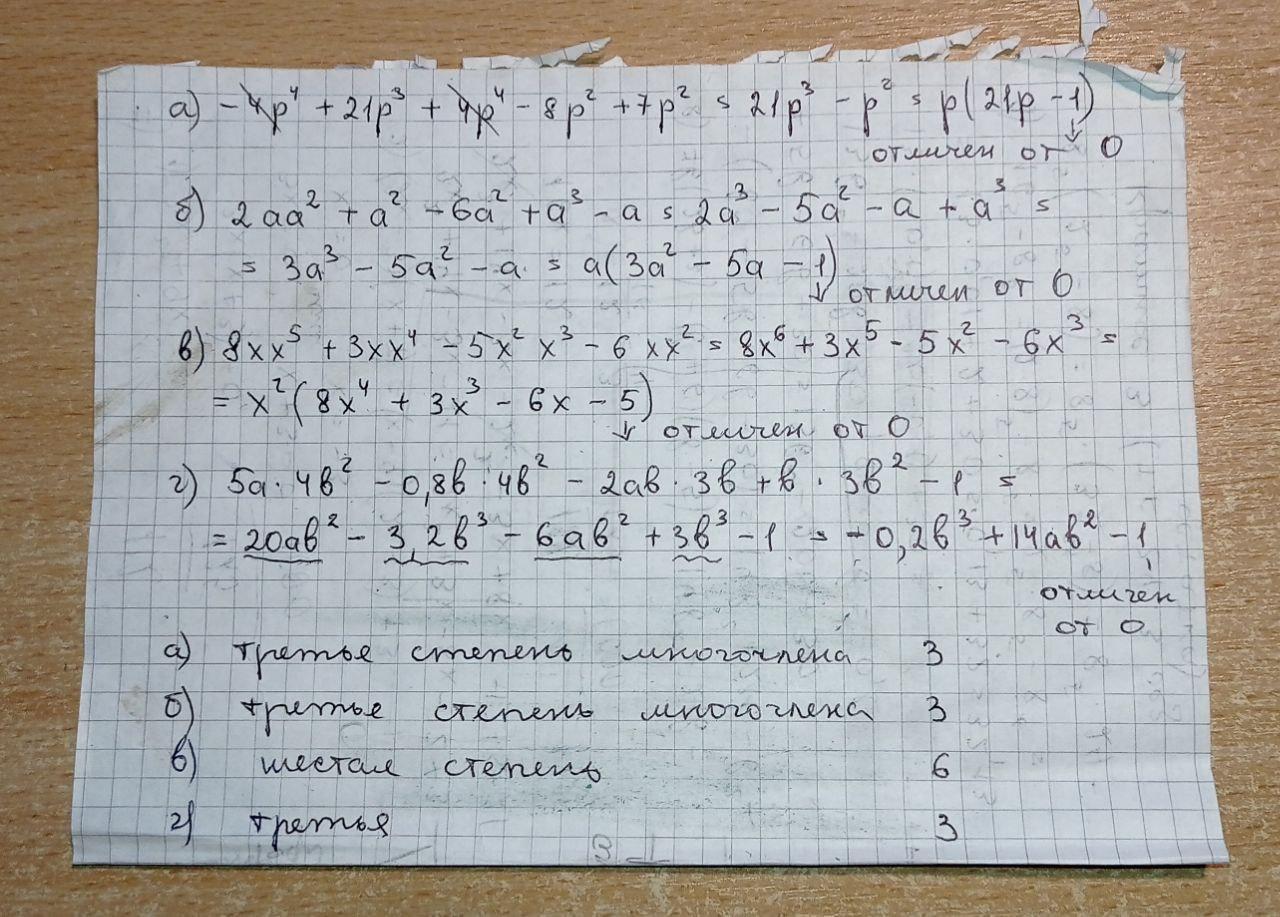 а) -4p⁴ + 21p³ + 4p⁴ - 8p² + 7p² = 21p³ - p² = p(21p - 1)
отличен от 0
б) 2aa² + a² - 6a² + a³ - a = 2a³ - 5a² - a + a³ =
= 3a³ - 5a² - a = a(3a² - 5a - 1)
отличен от 0
в) 8xx⁵ + 3xx⁴ - 5x² x³ - 6xx² = 8x⁶ + 3x⁵ - 5x² - 6x³ =
= x²(8x⁴ + 3x³ - 6x - 5)
отличен от 0
г) 5a · 4b² - 0,8b · 4b² - 2ab · 3b + b · 3b² - 1 =
= 20ab² - 3,2b³ - 6ab² + 3b³ - 1 = -0,2b³ + 14ab² - 1
отличен
от 0
а) третье степень многочлена 3
б) третье степень многочлена 3
в) шестая степень 6
г) третья 3